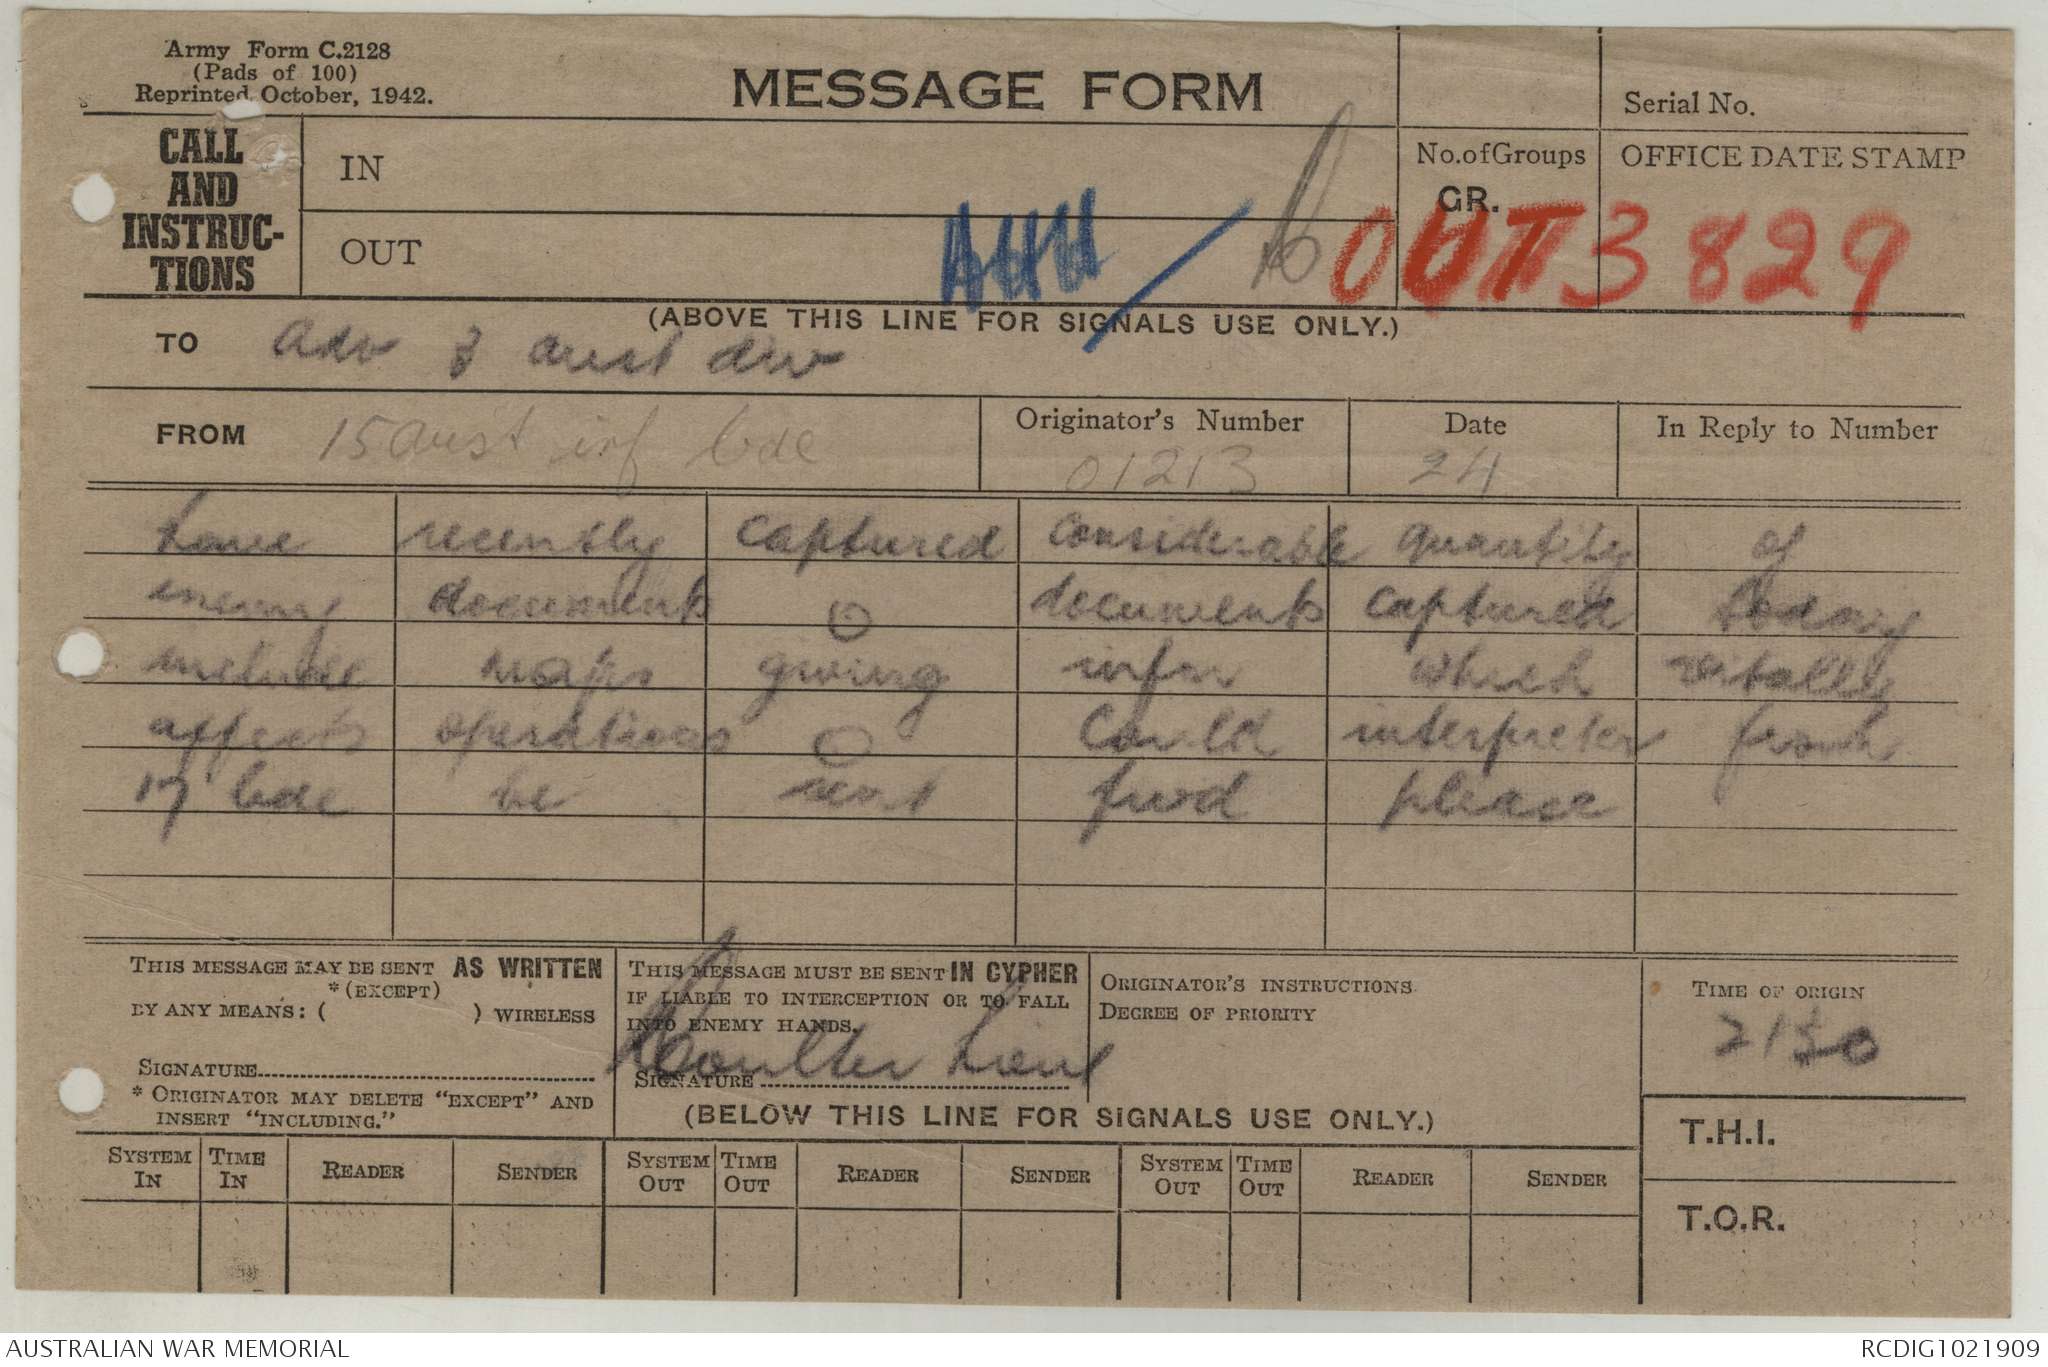 Army Form C.2128
(Pads of 100)
Reprinted October, 1942.
MESSAGE FORM
Serial No.
CALL AND INSTRUC-TIONS
IN
No. of Groups
GR.
OFFICE DATE STAMP
OUT
OUT 3829
(ABOVE THIS LINE FOR SIGNALS USE ONLY.)
TO adv 3 aust div
FROM 15 aust inf bde
Originator's Number
01213
Date
24
In Reply to Number
have recently captured considerable quantity of
enemy documents O documents captured today
include maps giving infm which vitally
affects operations O Could interpreter from
17 bde be sent fwd please
THIS MESSAGE MAY BE SENT AS WRITTEN
*(EXCEPT)
BY ANY MEANS: ( ) WIRELESS
SIGNATURE
* ORIGINATOR MAY DELETE "EXCEPT" AND
INSERT "INCLUDING."
THIS MESSAGE MUST BE SENT IN CYPHER
IF LIABLE TO INTERCEPTION OR TO FALL
INTO ENEMY HANDS.
Coulter Lieut
SIGNATURE
ORIGINATOR'S INSTRUCTIONS
DEGREE OF PRIORITY
TIME OF ORIGIN
2130
(BELOW THIS LINE FOR SIGNALS USE ONLY.)
T.H.I.
T.O.R.
SYSTEM IN
TIME IN
READER
SENDER
SYSTEM OUT
TIME OUT
READER
SENDER
SYSTEM OUT
TIME OUT
READER
SENDER
AUSTRALIAN WAR MEMORIAL
RCDIG1021909